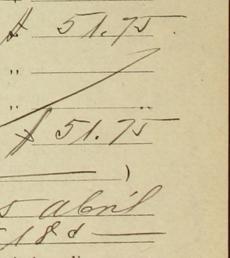 $ 51.75
"
" "
$ 51.75
)
abril
188